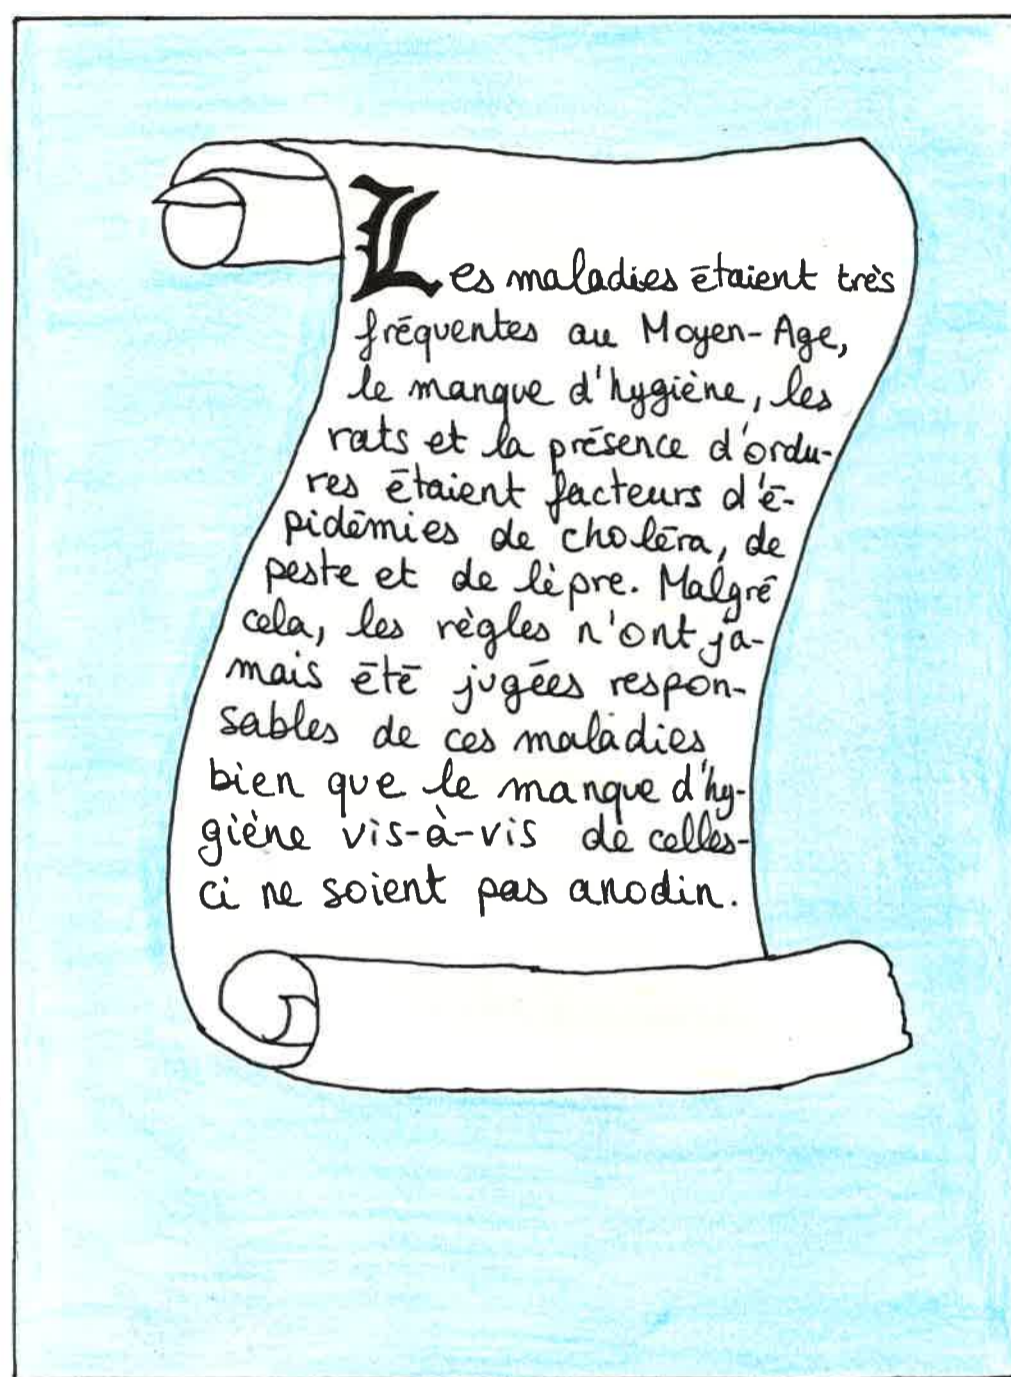 Les maladies étaient très
fréquentes au Moyen-Age,
le manque d'hygiène, les
rats et la présence d'ordu-
res étaient facteurs d'é-
pidémies de choléra, de
peste et de lèpre. Malgré
cela, les règles n'ont ja-
mais été jugées respon-
sables de ces maladies
bien que le manque d'hy-
giène vis-à-vis de celles-
ci ne soient pas anodin.